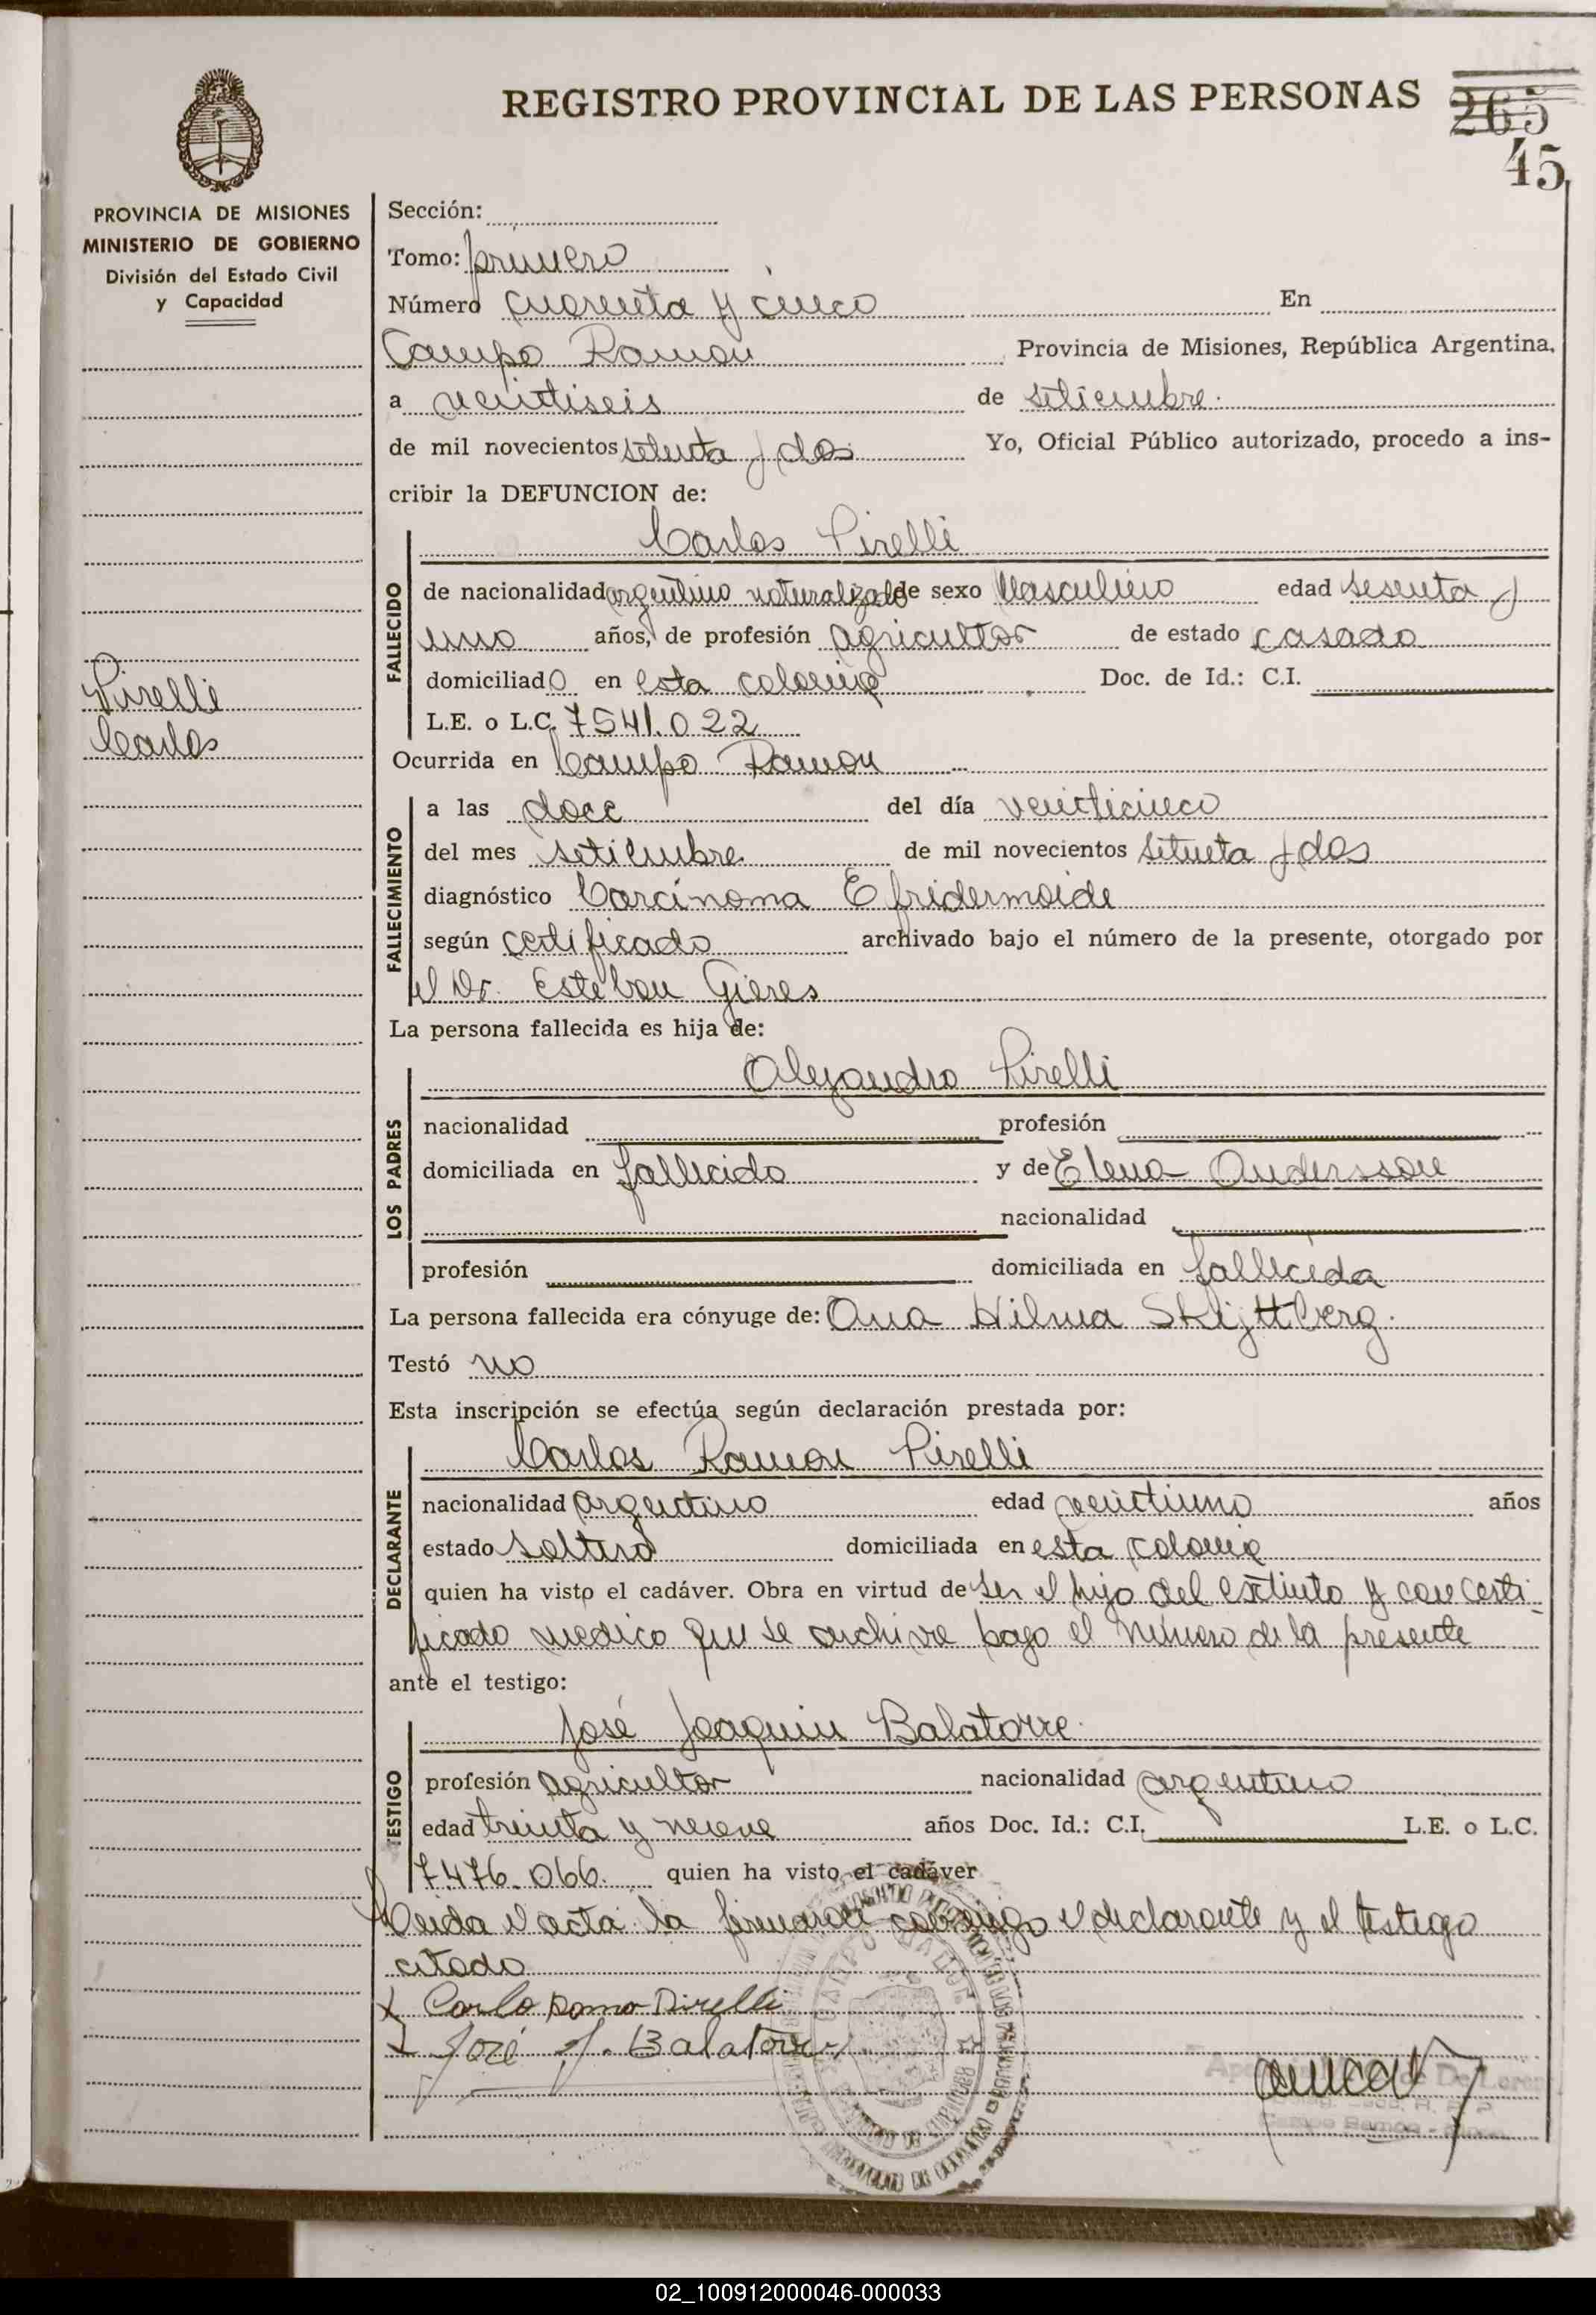 REGISTRO PROVINCIAL DE LAS PERSONAS
265
45
PROVINCIA DE MISIONES
MINISTERIO DE GOBIERNO
División del Estado Civil
y Capacidad
Sección:
Tomo: primero
Número cuarenta y cinco En
Campo Ramon Provincia de Misiones, República Argentina,
a veintiseis de setiembre.
de mil novecientos setenta y dos Yo, Oficial Público autorizado, procedo a ins-
cribir la DEFUNCION de:
Carlos Pirelli
FALLECIDO
de nacionalidad argentino naturalizado de sexo Masculino edad sesenta y
uno años, de profesión agricultor de estado casado
domiciliado en esta colonia Doc. de Id.: C.I.
L.E. o L.C. 7541.022
Pirelli
Carlos
Ocurrida en Campo Ramon
FALLECIMIENTO
a las doce del día veinticinco
del mes setiembre de mil novecientos setenta y dos
diagnóstico Carcinoma Epidermoide
según certificado archivado bajo el número de la presente, otorgado por
el Dr. Esteban Gieres
La persona fallecida es hija de:
LOS PADRES
Alejandro Pirelli
nacionalidad profesión
domiciliada en fallecido y de Elena Andersson
nacionalidad
profesión domiciliada en fallecida
La persona fallecida era cónyuge de: Ana Hilma
Testó no
Esta inscripción se efectúa según declaración prestada por:
DECLARANTE
Carlos Ramon Pirelli
nacionalidad argentino edad veintiuno años
estado soltero domiciliada en esta colonia
quien ha visto el cadáver. Obra en virtud de ser el hijo del extinto y con certi-
ficado medico que se archiva bajo el número de la presente
ante el testigo:
TESTIGO
José Joaquin Balatorre.
profesión agricultor nacionalidad argentino
edad treinta y nueve años Doc. Id.: C.I. L.E. o L.C.
7.476.066. quien ha visto el cadáver
Leida el acta la firman conmigo el declarante y el testigo
citado
x Carlo Pirelli
x José J. Balatorre
De Loren
Campo Ramon
02_100912000046-000033